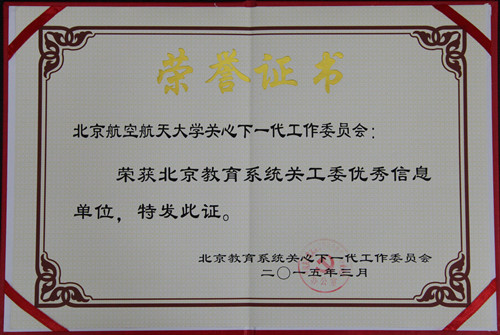 荣誉证书
北京航空航天大学关心下一代工作委员会：
荣获北京教育系统关工委优秀信息
单位，特发此证。
北京教育系统关心下一代工作委员会
二〇一五年三月